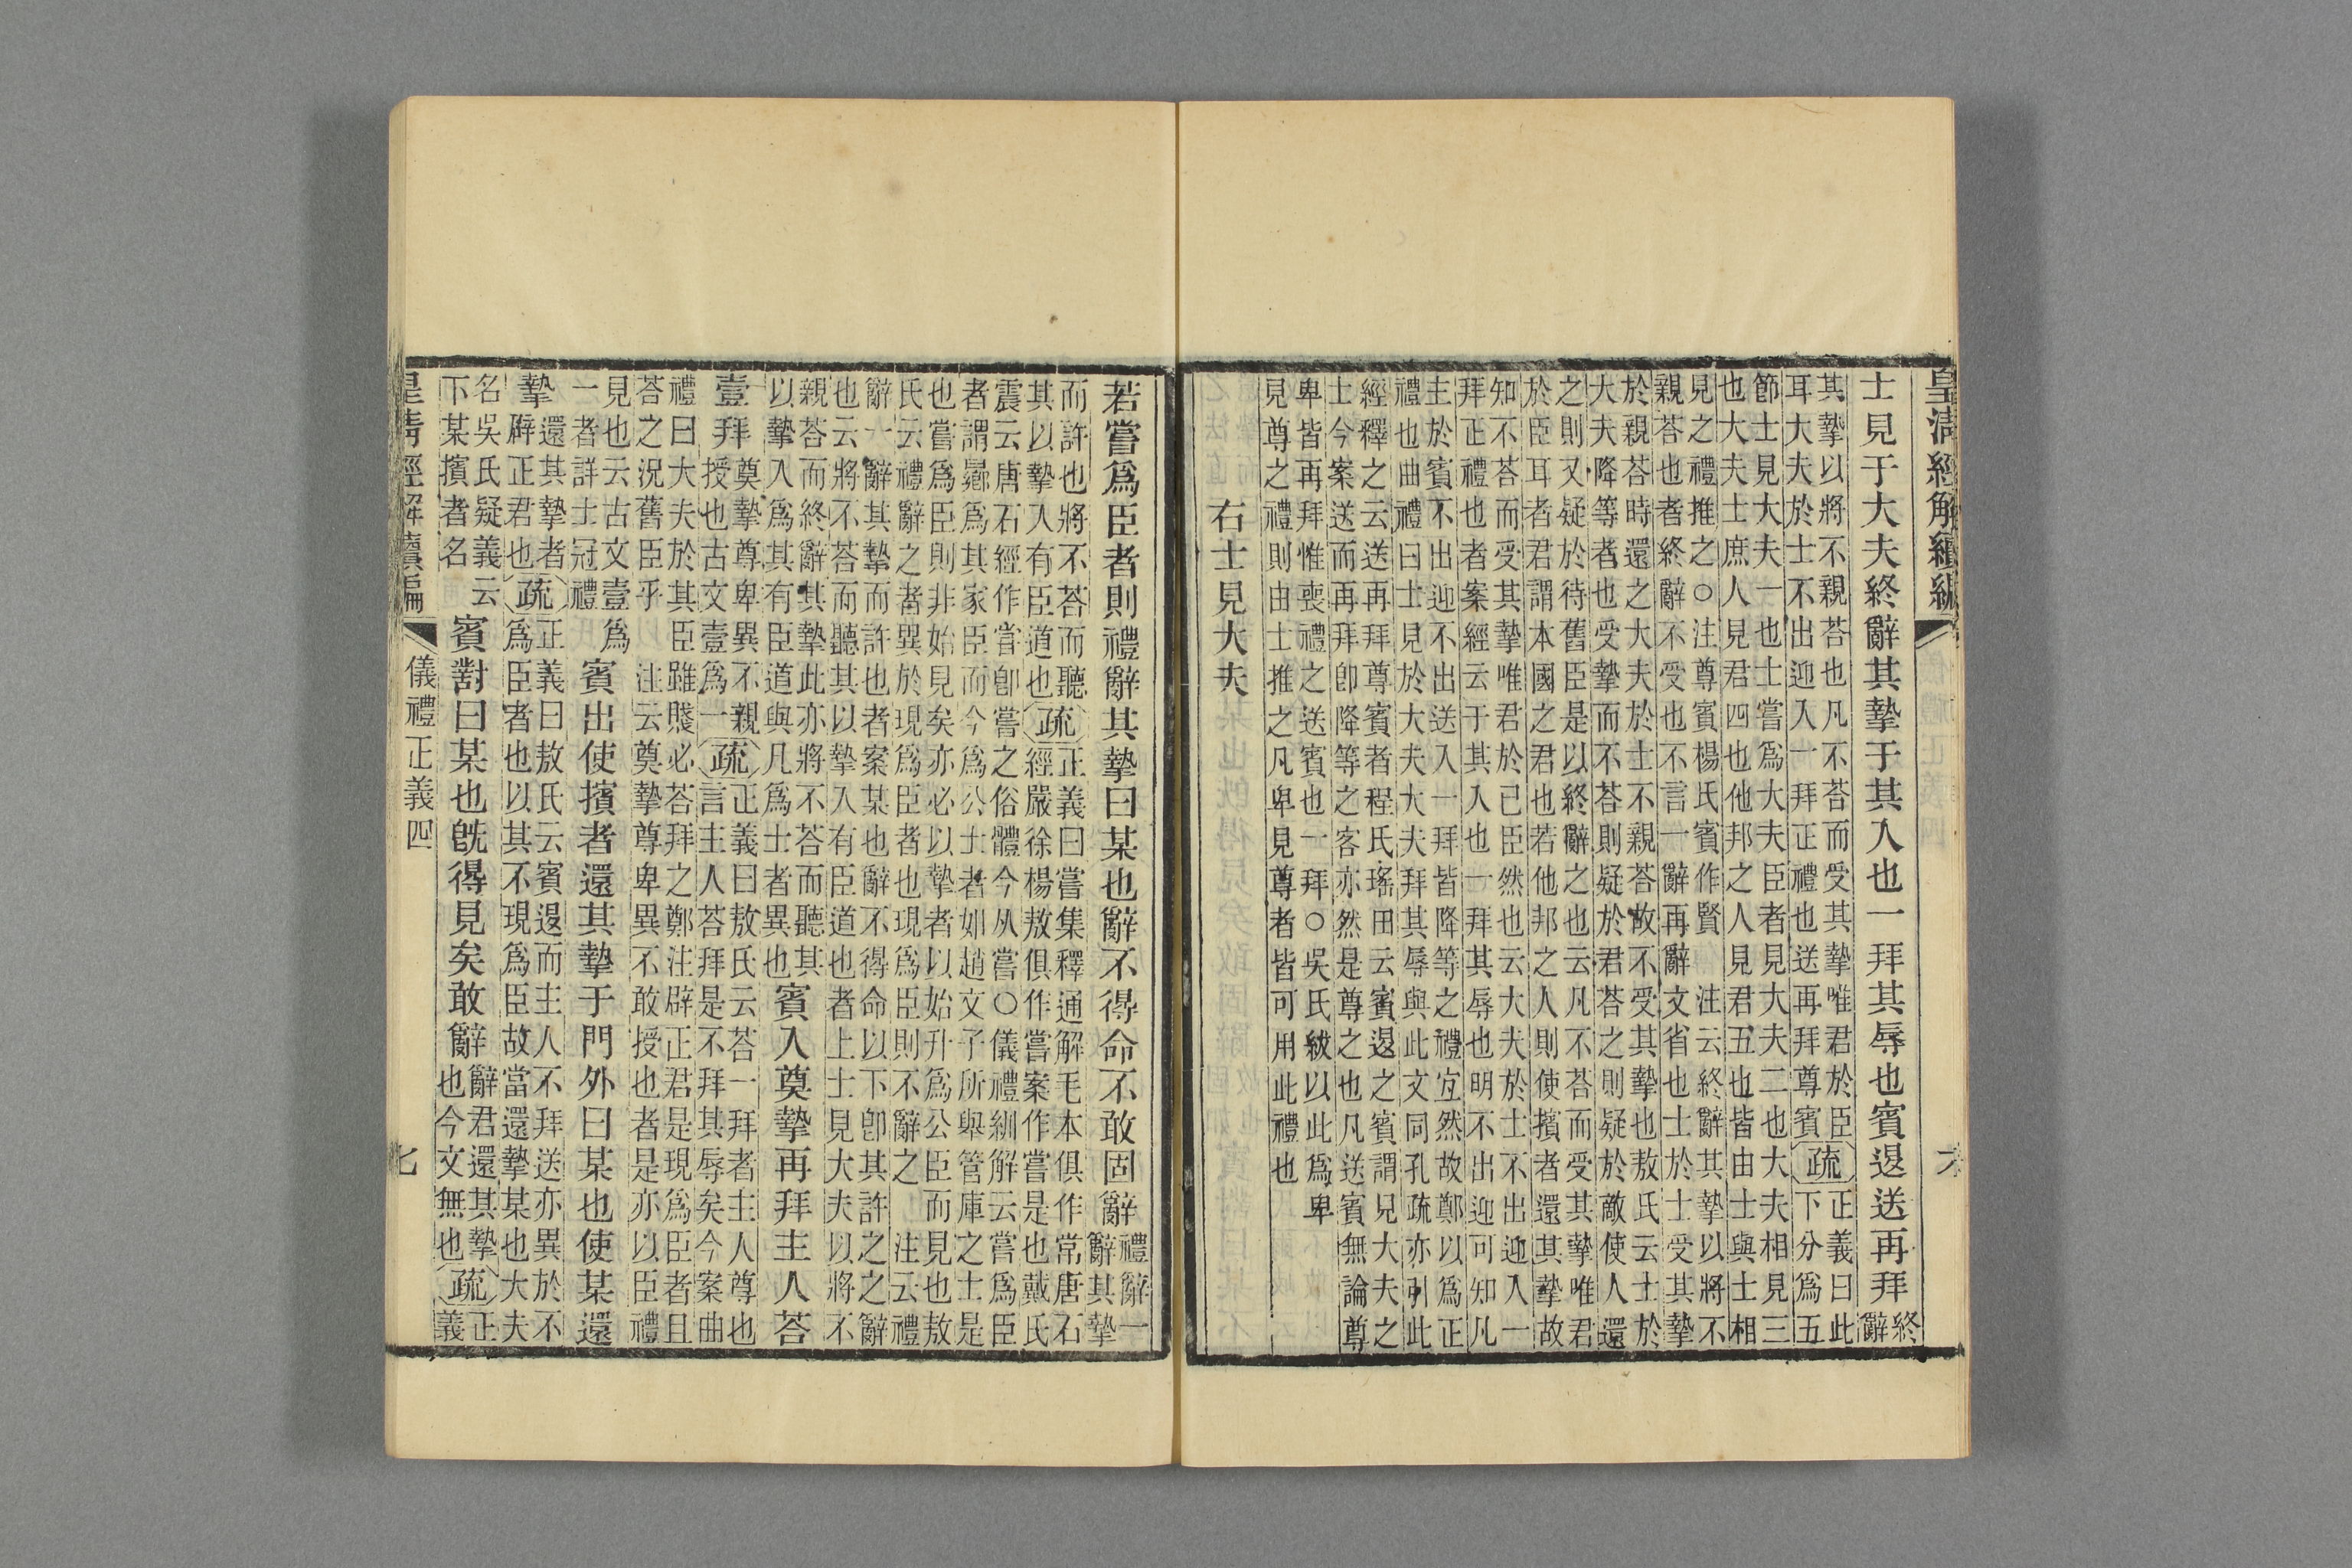 皇清經解續編
士見于大夫終辭其摯于其入也一拜其辱也賓退送再拜終
辭
其摯以將不親荅也凡不荅而受其摯唯君於臣疏正義曰此
耳大夫於士不出迎入一拜正禮也送再拜尊賓下分爲五
節士見大夫一也士嘗爲大夫臣者見大夫二也大夫相見三
也大夫士庶人見君四也他邦之人見君五也皆由士與士相
見之禮推之○注尊賓楊氏賓作賢 注云終辭其摯以將不
親荅也者終辭不受也不言一辭再辭文省也士於士受其摯
於親荅時還之大夫於士不親荅故不受其摯也敖氏云士於
大夫降等者也受摯而不荅則疑於君荅之則疑於敵使人還
之則又疑於待舊臣是以終辭之也云凡不荅而受其摯唯君
於臣耳者君謂本國之君也若他邦之人則使擯者還其摯故
知不荅而受其摯唯君於已臣然也云大夫於士不出迎入一
拜正禮也者案經云于其入也一拜其辱也明不出迎可知凡
主於賓不出迎不出送入一拜皆降等之禮宜然故鄭以爲正
禮也曲禮曰士見於大夫大夫拜其辱與此文同孔疏亦引此
經釋之云送再拜尊賓者程氏瑤田云賓退之賓謂兄大夫之
士今案送而再拜卽降等之客亦然是尊之也凡送賓無論尊
卑皆再拜惟喪禮之送賓也一拜○吳氏紱以此爲卑
見尊之禮則由士推之凡卑見尊者皆可用此禮也
右士見大夫
若嘗爲臣者則禮辭其摯曰某也辭不得命不敢固辭禮辭一
辭其摯
而許也將不荅而聽疏正義曰嘗集釋通解毛本俱作常唐石
其以摯入有臣道也經嚴徐楊敖俱作嘗案作嘗是也戴氏
震云唐石經作甞卽嘗之俗體今从嘗○儀禮紃解云嘗爲臣
者謂曏爲其家臣而今爲公士者如趙文子所舉管庫之士是
也嘗爲臣則非始見矣亦必以摯者以始升爲公臣而見也敖
氏云禮辭之者異於現爲臣者也現爲臣則不辭之 注云禮
辭一辭其摯而許也者案某也辭不得命以下卽其許之之辭
也云將不荅而聽其以摯入有臣道也者上士見大夫以將不
親荅而終辭其摯此亦將不荅而聽其
以摯入爲其有臣道與凡爲士者異也
賓入奠摯再拜主人荅
壹拜奠摯尊卑異不親疏正義曰敖氏云荅一拜者主人尊也
授也古文壹爲一言主人荅拜是不拜其辱矣今案曲
禮曰大夫於其臣雖賤必荅拜之鄭注辟正君是現爲臣者且
荅之況舊臣乎 注云奠摯尊卑異不敢授也者是亦以臣禮
見也云古文壹爲
一者詳士冠禮
賓出使擯者還其摯于門外曰某也使某還
摯還其摯者疏正義曰敖氏云賓退而主人不拜送亦異於不
辟正君也爲臣者也以其不現爲臣故當還摯某也大夫
名吳氏疑義云
下某擯者名
賓對曰某也旣得見矣敢辭辭君還其摯疏正
也今文無也義
皇清經解續編
儀禮正義四
七